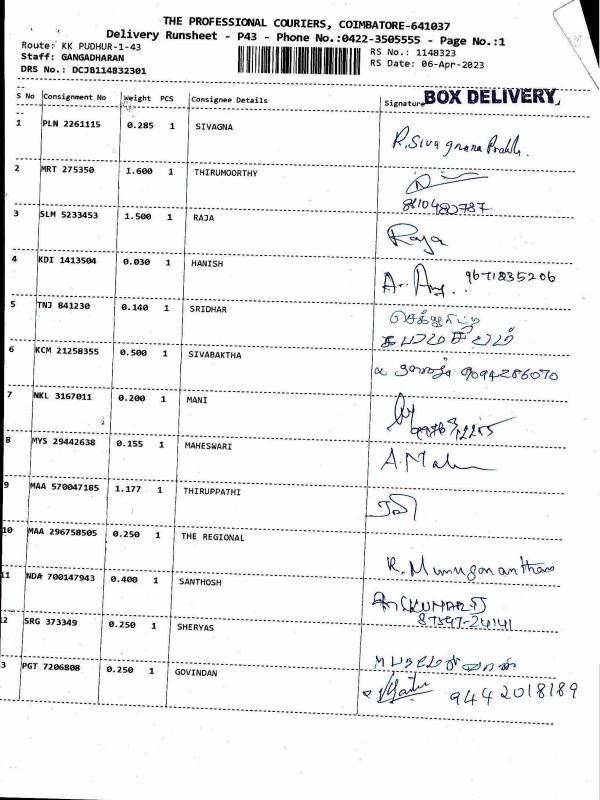 THE PROFESSIONAL COURIERS, COIMBATORE-641037
Delivery Runsheet - P43 - Phone No.:0422-3505555 - Page No.:1
Route: KK PUDHUR-1-43 RS No.: 1148323
Staff: GANGADHARAN RS Date: 06-Apr-2023
DRS No.: DCJB114832301
BOX DELIVERY
S No Consignment No Weight PCS Consignee Details Signature
1 PLN 2261115 0.285 1 SIVAGNA R. Sivagnana
2 MRT 275350 1.600 1 THIRUMOORTHY
3 SLM 5233453 1.500 1 RAJA Raja
4 KDI 1413504 0.030 1 HANISH 9671835206
5 TNJ 841230 0.140 1 SRIDHAR
6 KCM 21258355 0.500 1 SIVABAKTHA 9094286070
7 NKL 3167011 0.200 1 MANI
8 MYS 29442638 0.155 1 MAHESWARI A. Mah
9 MAA 570047185 1.177 1 THIRUPPATHI
10 MAA 296758505 0.250 1 THE REGIONAL R. Murugananthan
11 NDA 700147943 0.400 1 SANTHOSH
87597-24141
2 SRG 373349 0.250 1 SHERYAS
3 PGT 7206808 0.250 1 GOVINDAN 9442018189